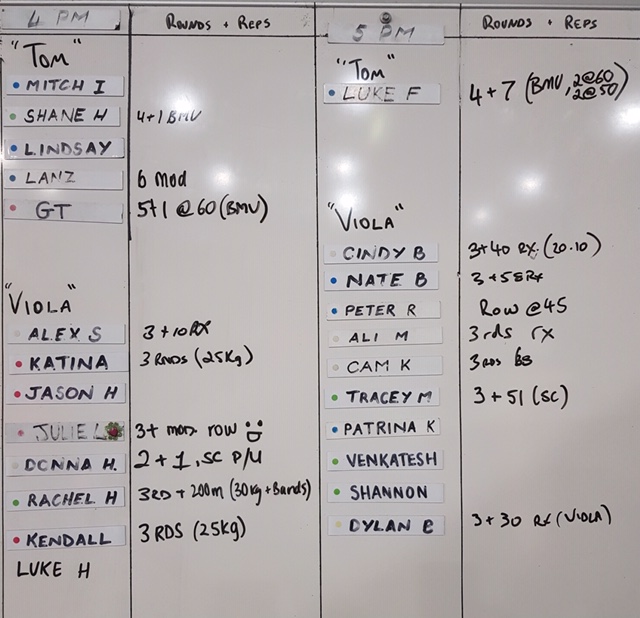 4 PM
ROUNDS + REPS
"TOM"
MITCH I
SHANE H 4+1 BMU
LINDSAY
LANZ 6 mod
GT 5+1 @60 (BMU)
"VIOLA"
ALEX S 3+10 RX
KATINA 3 RNDS (25Kg)
JASON H
JULIE L 3+ more row
DONNA H. 2+1, SC P/U
RACHEL H 3RD + 200m (30kg + Bands)
KENDALL 3 RDS (25kg)
LUKE H
5 PM
ROUNDS + REPS
"TOM"
LUKE F 4+7 (BMU, 2@60
2@50)
"VIOLA"
CINDY B 3+40 RX. (20.10)
NATE B 3+58 RX
PETER R Row @45
ALI M 3 rds rx
CAM K 3 RDS
TRACEY M 3+51 (SC)
PATRINA K
VENKATESH
SHANNON
DYLAN B 3+30 RX (VIOLA)